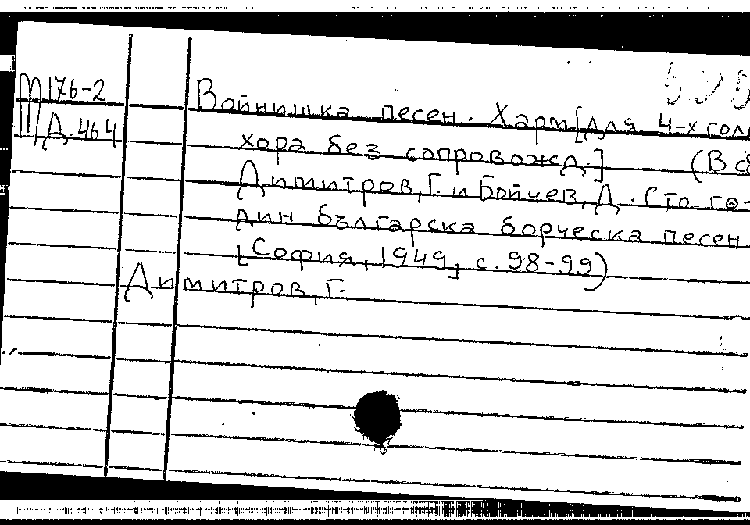 Ш 176-2
Д. 464
Войнишка песен. Харм [для 4-х гол
хора без сопровожд.] (В сб
Димитров, Г. и Бойчев, Д. Сто го-
дин българска борческа песен
[София, 1949, с. 98-99)
Димитров, Г.